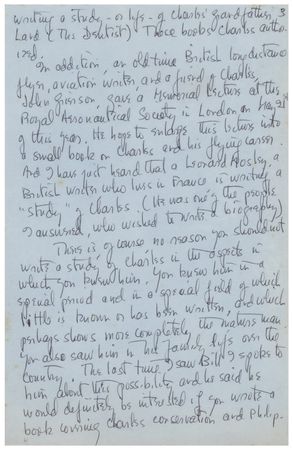 writing a study - or life - of Charles' grandfather, 3
Land (The Dentist) These books Charles author-
ized.
In addition, an old time British long distance
flyer, aviation writer, and a friend of Charles,
John Grierson, gave a Memorial Lecture at the
Royal Aeronautical Society in London on May 21st
of this year. He hopes to enlarge this lecture into
a small book on Charles and his flying career.
And I have just heard that a Leonard Mosley, a
British writer who lives in France is writing a
"study" of Charles. (He was one of the people
I answered, who wished to write a biography)
There is of course no reason you should not
write a study of Charles in the aspects in
which you knew him. You knew him in a
special period and in a special field of which
little is known or has been written, and which
perhaps shows more completely the mature man.
You also saw him in his family life over the
country. The last time I saw Bill I spoke to
him about this possibility and he said he
would definitely be interested if you wrote a
book covering Charles conservation and Philip-